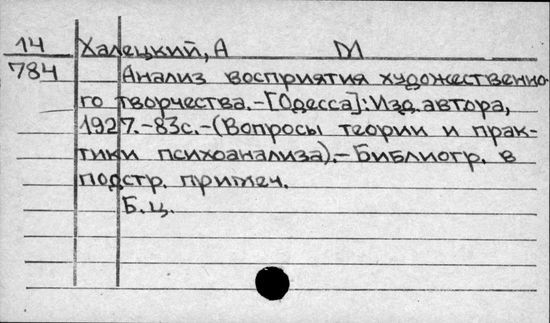 14 Халецкий, А М
784 Анализ восприятия художественно-
го творчества.-[Одесса]:Изд.автора,
1927.-83с.-(Вопросы теории и прак-
тики психоанализа).-Библиогр. в
подстр. примеч.
Б.ц.